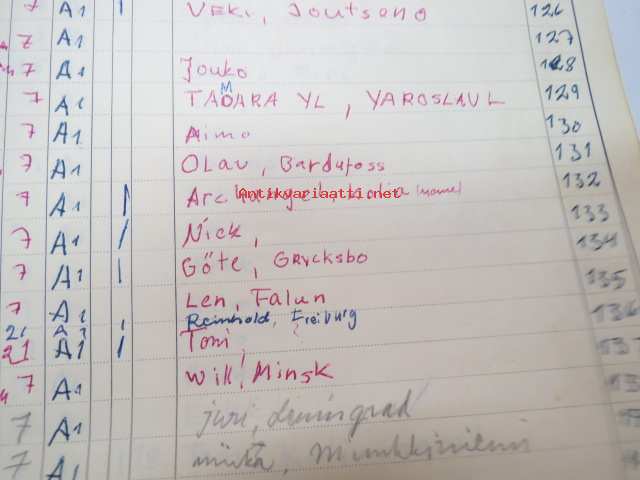 7 A1 | VEKI, Joutseno 126
7 A1 127
7 A1 Jouko 128
7 A1 TAMARA YL, YAROSLAVL 129
7 A1 Aimo 130
7 A1 OLAV, Bardufoss 131
7 A1 | Archangel 132
Antikvariaatti.net
7 A1 / Nick, 133
7 A1 | Göte, Grycksbo 134
7 A1 Len, Falun 135
21 A1 Reinhold, Freiburg 136
21 A1 / Toni,
7 A1 Will, Minsk
7 A1 juri, Leningrad
7 A1 Munkkiniemi